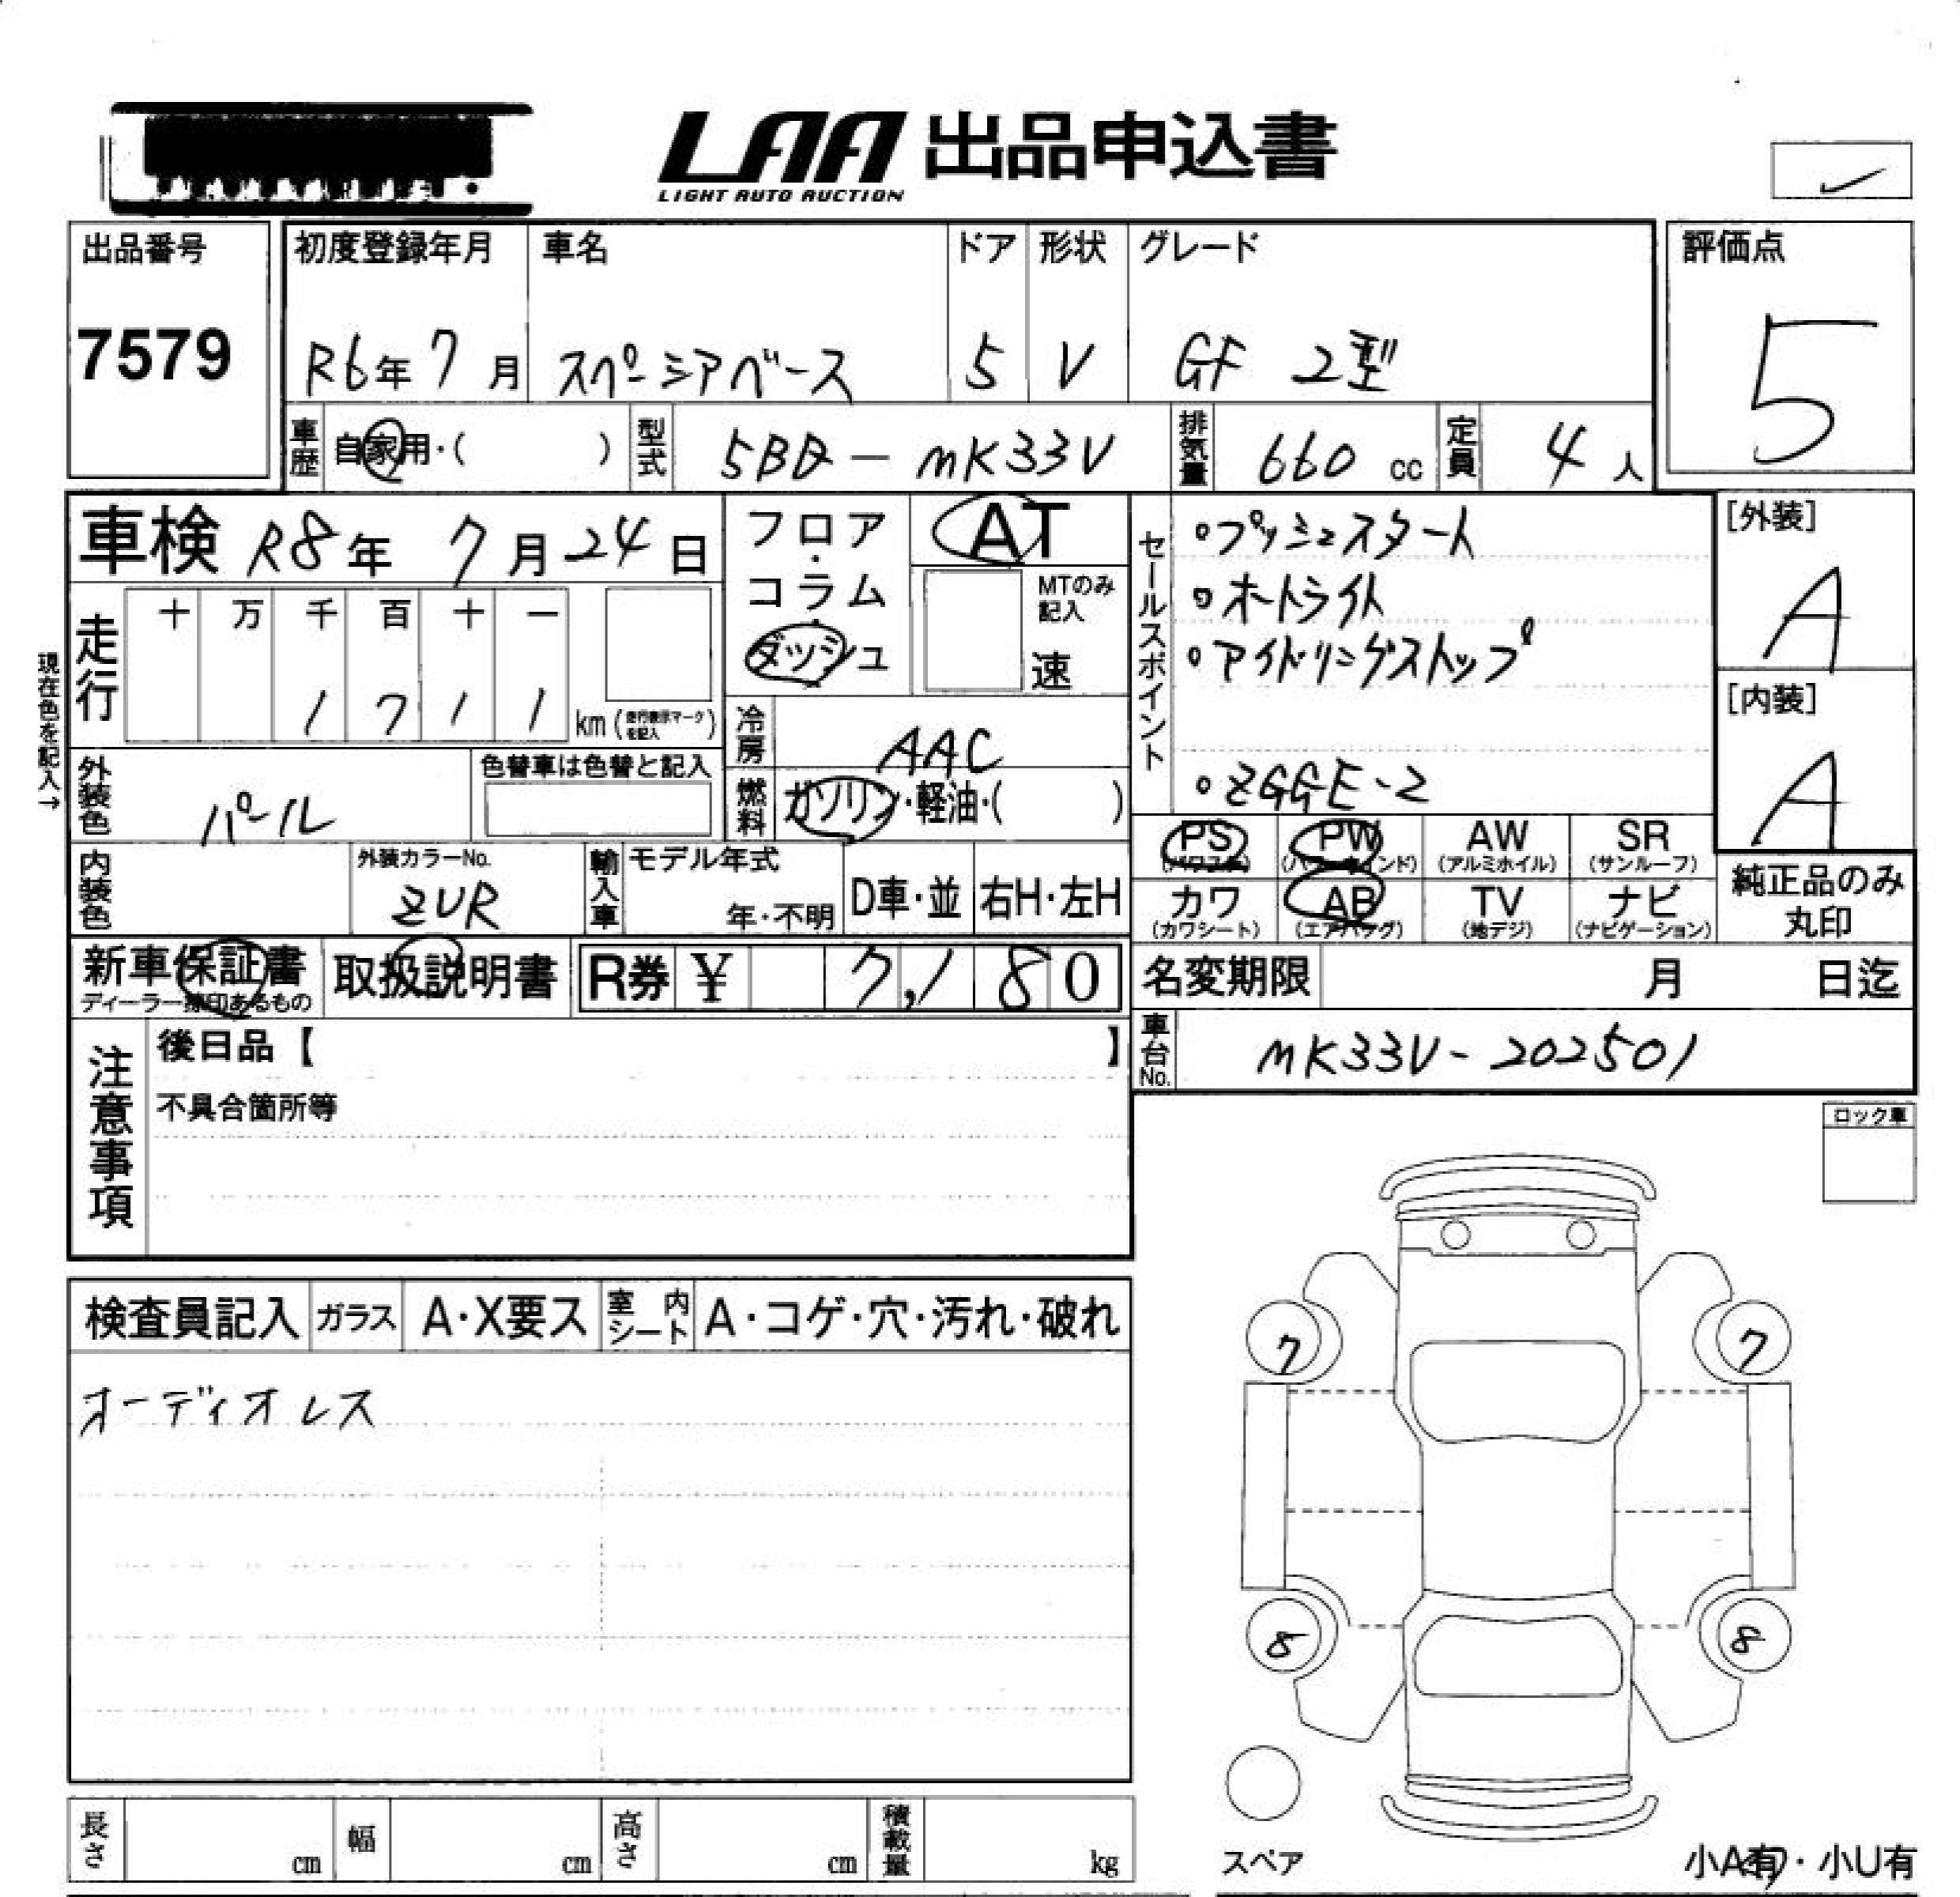 LAA 出品申込書
LIGHT AUTO AUCTION
出品番号
7579
初度登録年月 車名 ドア 形状 グレード
R6年 7月 スペーシアベース 5 V GF 2型
評価点
5
車歴 自家用・( ) 型式 5BD-MK33V 排気量 660 cc 定員 4人
車検 R8年 7月24日
フロア・コラム・ダッシュ
AT
MTのみ記入
速
セールスポイント
・プッシュスタート
・オートライト
・アイドリングストップ
・ZGGE-2
[外装]
A
[内装]
A
現在色を記入→
走行 十 万 千 百 十 一
1 7 1 1 km (走行表示マークを記入)
冷房 AAC
外装色 パール 色替車は色替と記入
燃料 ガソリン・軽油・( )
PS (パワステ) PW (パワーウインド) AW (アルミホイル) SR (サンルーフ)
カワ (カワシート) AB (エアバッグ) TV (地デジ) ナビ (ナビゲーション)
純正品のみ丸印
内装色 外装カラーNo. ZVR 輸入車 モデル年式 年・不明 D車・並 右H・左H
新車保証書 ディーラー捺印あるもの 取扱説明書 R券 ¥ 7,180
名変期限 月 日迄
車台No. MK33V-202501
注意事項
後日品【 】
不具合箇所等
ロック車
検査員記入 ガラス A・X要ス 室内シート A・コゲ・穴・汚れ・破れ
オーディオレス
7 7
8 8
スペア
小A有・小U有
長さ cm 幅 cm 高さ cm 積載量 kg